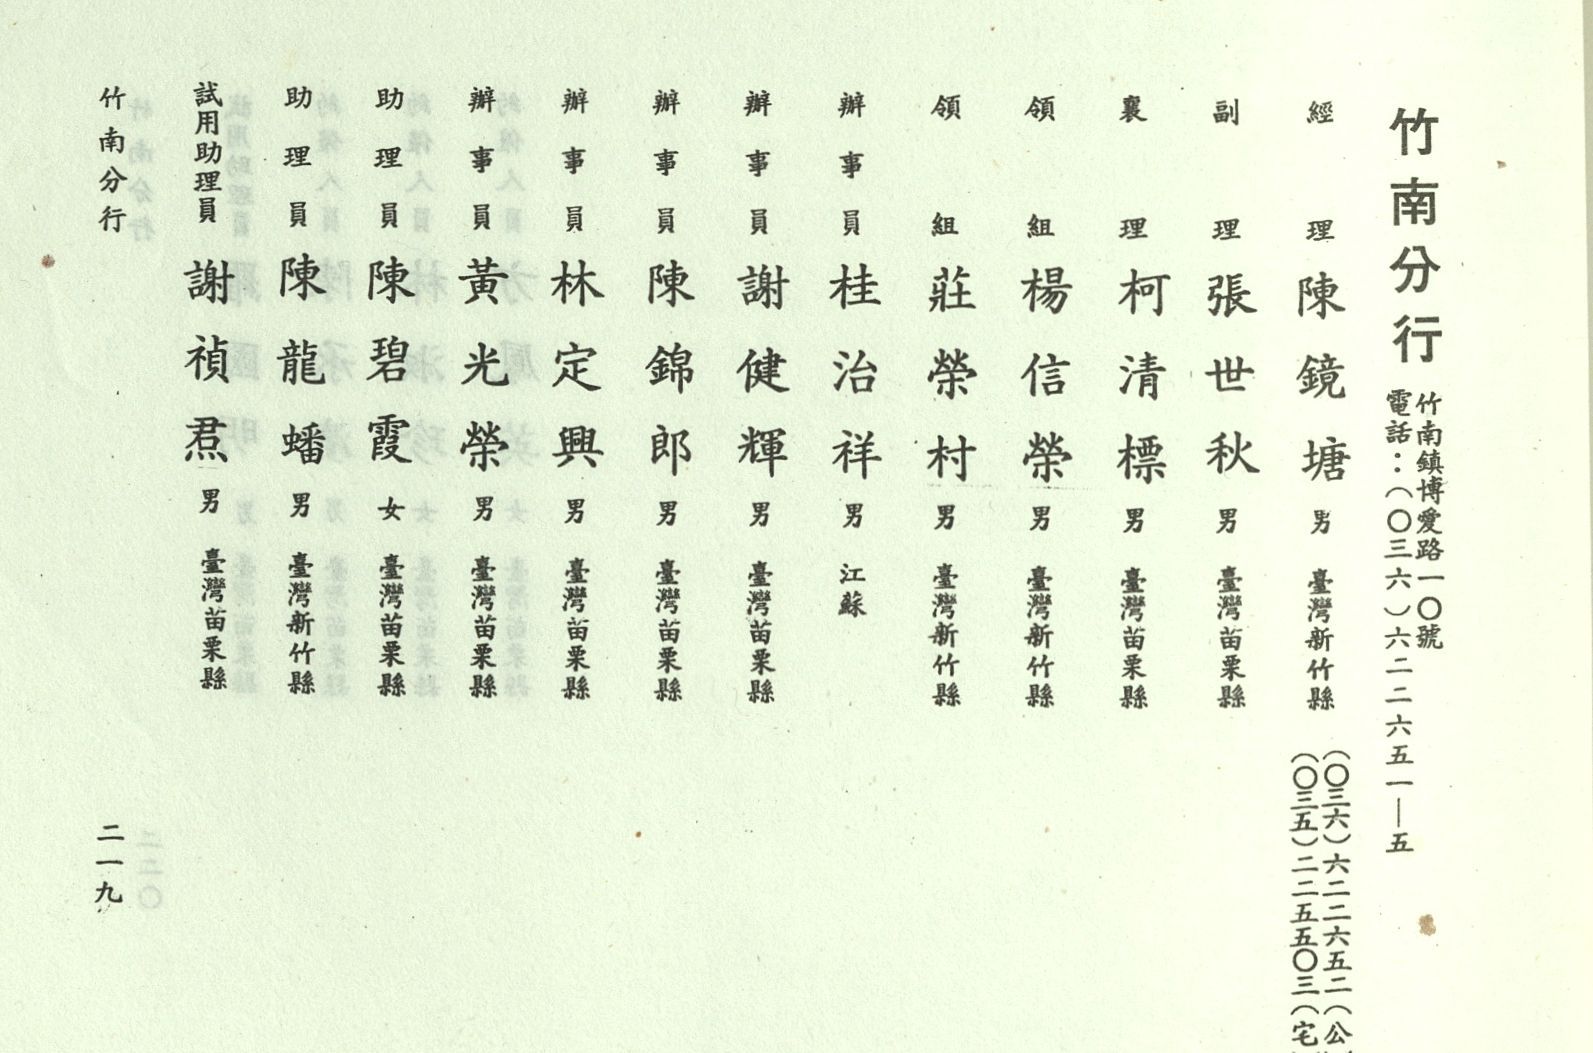 竹南分行
竹南鎮博愛路一〇號
電話：(〇三六)六二二六五一—五
經理 陳鏡塘 男 臺灣新竹縣 (〇三六)六二二六五二(公
(〇三五)二二五五〇三(宅
副理 張世秋 男 臺灣苗栗縣
襄理 柯清標 男 臺灣苗栗縣
領組 楊信榮 男 臺灣新竹縣
領組 莊榮村 男 臺灣新竹縣
辦事員 桂治祥 男 江蘇
辦事員 謝健輝 男 臺灣苗栗縣
辦事員 陳錦郎 男 臺灣苗栗縣
辦事員 林定興 男 臺灣苗栗縣
辦事員 黃光榮 男 臺灣苗栗縣
助理員 陳碧霞 女 臺灣苗栗縣
助理員 陳龍蟠 男 臺灣新竹縣
試用助理員 謝禎焄 男 臺灣苗栗縣
竹南分行
二一九